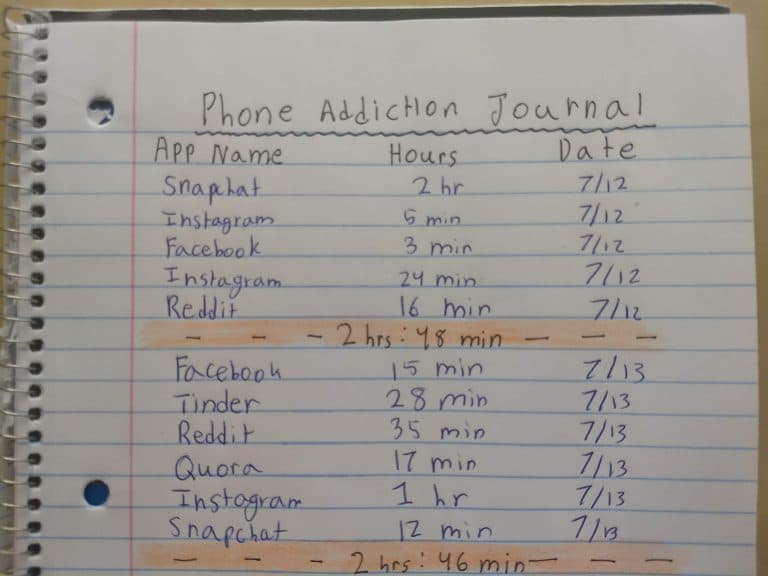 Phone Addiction Journal
App Name Hours Date
Snapchat 2 hr 7/12
Instagram 5 min 7/12
Facebook 3 min 7/12
Instagram 24 min 7/12
Reddit 16 min 7/12
— — — 2 hrs: 48 min — — —
Facebook 15 min 7/13
Tinder 28 min 7/13
Reddit 35 min 7/13
Quora 17 min 7/13
Instagram 1 hr 7/13
Snapchat 12 min 7/13
— — — 2 hrs: 46 min — — —